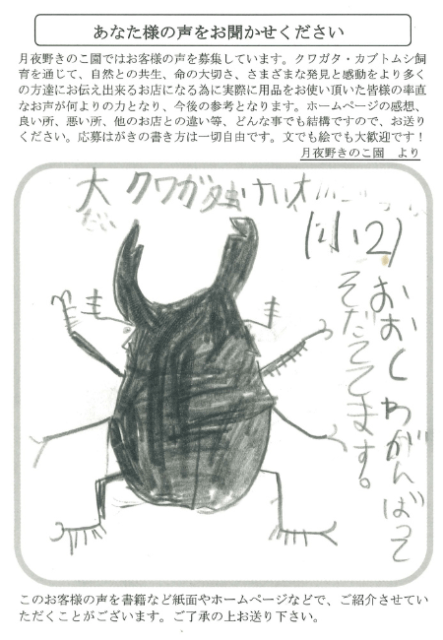 あなた様の声をお聞かせください
月夜野きのこ園ではお客様の声を募集しています。クワガタ・カブトムシ飼
育を通じて、自然との共生、命の大切さ、さまざまな発見と感動をより多く
の方達にお伝え出来るお店になる為に実際に用品をお使い頂いた皆様の率直
なお声が何よりの力となり、今後の参考となります。ホームページの感想、
良い所、悪い所、他のお店との違い等、どんな事でも結構ですので、お送り
ください。応募はがきの書き方は一切自由です。文でも絵でも大歓迎です！
月夜野きのこ園　より
大クワガタ
だい
(小2)
おおくわがんばって
そだててます。
このお客様の声を書籍など紙面やホームページなどで、ご紹介させてい
ただくことがございます。ご了承の上お送り下さい。